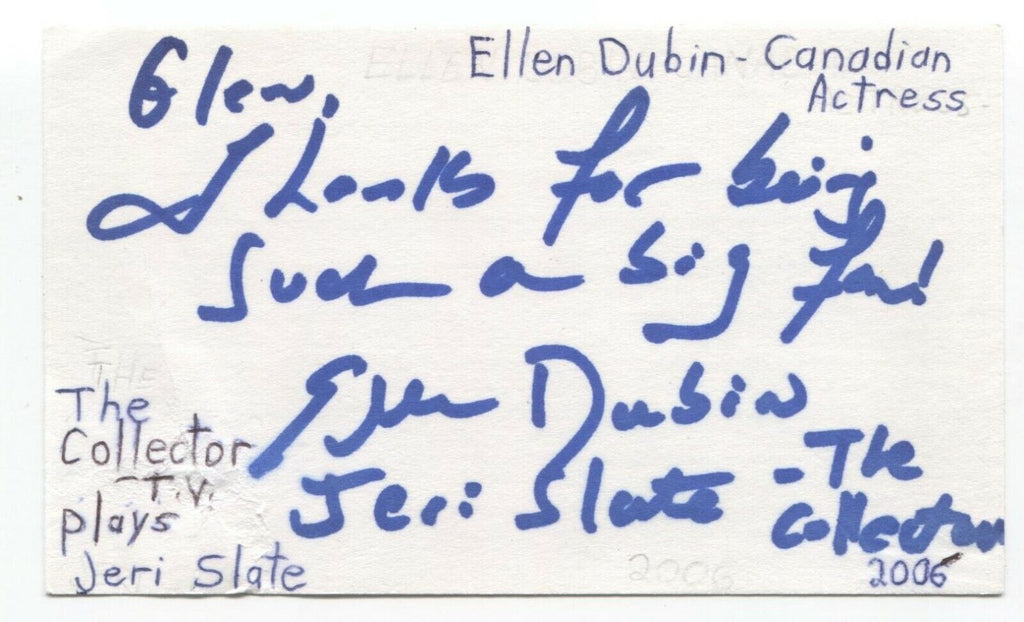 Ellen Dubin - Canadian
Actress
Glen,
Thanks for being
such a big fan!
Ellen Dubin
Jeri Slate - The
Collector
2006
The
Collector
T.V.
plays
Jeri Slate
2006